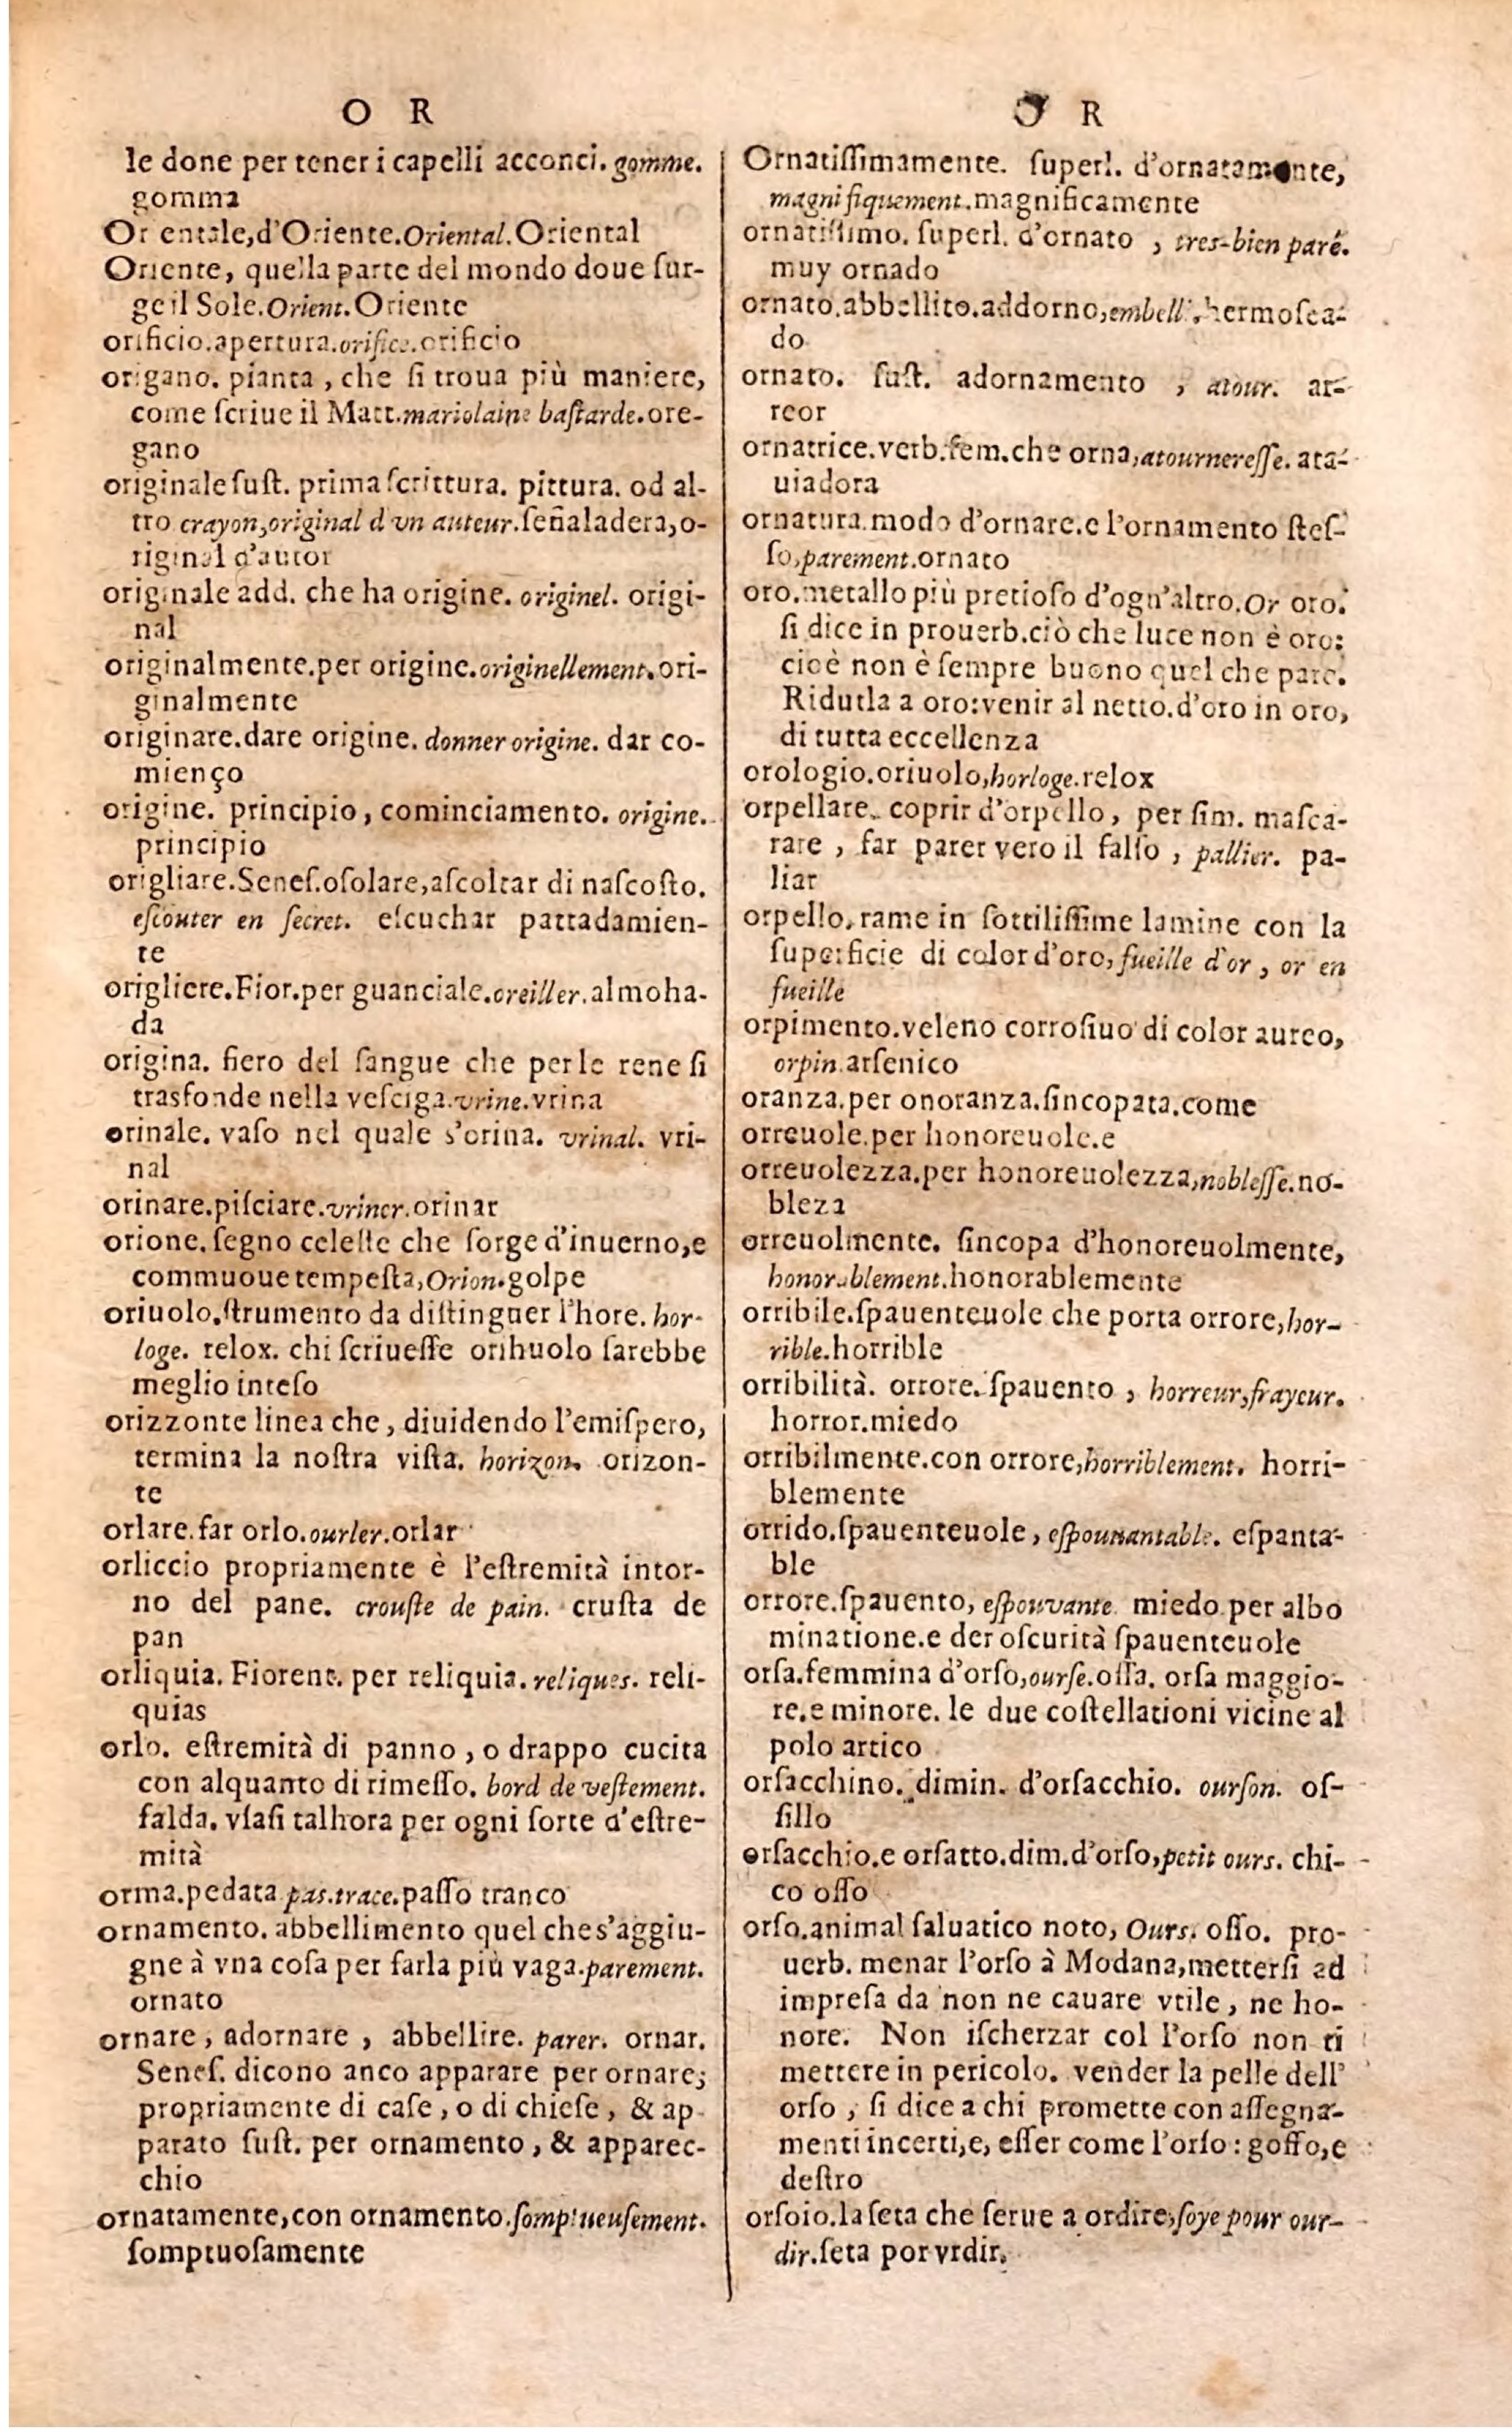 O R
le done per tener i capelli acconci. gomme.
gomma
Or entale, d'Oriente. Oriental. Oriental
Oriente, quella parte del mondo doue ſur-
ge il Sole. Orient. Oriente
orificio. apertura. orifice. orificio
origano. pianta, che ſi troua più maniere,
come ſcriue il Matt. mariolaine baſtarde. ore-
gano
originale ſuſt. prima ſcrittura. pittura. od al-
tro crayon, original d'vn auteur. ſeñaladera, o-
riginal d'autor
originale add. che ha origine. originel. origi-
nal
originalmente. per origine. originellement. ori-
ginalmente
originare. dare origine. donner origine. dar co-
mienço
origine. principio, cominciamento. origine.
principio
origliare. Seneſ. oſolare, aſcoltar di naſcoſto.
eſcouter en ſecret. eſcuchar pattadamien-
te
origliere. Fior. per guanciale. oreiller. almoha-
da
origina. ſiero del ſangue che per le rene ſi
trasfonde nella veſciga. vrine. vrina
orinale. vaſo nel quale s'orina. vrinal. vri-
nal
orinare. piſciare. vriner. orinar
orione. ſegno celeſte che ſorge d'inuerno, e
commuoue tempeſta, Orion. golpe
oriuolo. ſtrumento da diſtinguer l'hore. hor-
loge. relox. chi ſcriueſſe orihuolo ſarebbe
meglio inteſo
orizzonte linea che, diuidendo l'emiſpero,
termina la noſtra viſta. horizon. orizon-
te
orlare. far orlo. ourler. orlar
orliccio propriamente è l'eſtremità intor-
no del pane. crouſte de pain. cruſta de
pan
orliquia. Fiorent. per reliquia. reliques. reli-
quias
orlo. eſtremità di panno, o drappo cucita
con alquanto di rimeſſo. bord de veſtement.
falda. vſaſi talhora per ogni ſorte d'eſtre-
mità
orma. pedata pas. trace. paſſo tranco
ornamento. abbellimento quel che s'aggiu-
gne à vna coſa per farla più vaga. parement.
ornato
ornare, adornare, abbellire. parer. ornar.
Seneſ. dicono anco apparare per ornare;
propriamente di caſe, o di chieſe, & ap
parato ſuſt. per ornamento, & apparec-
chio
ornatamente, con ornamento. ſomptueuſement.
ſomptuoſamente
O R
Ornatiſſimamente. ſuperl. d'ornatamente,
magnifiquement. magnificamente
ornatiſſimo. ſuperl. d'ornato, tres-bien paré.
muy ornado
ornato. abbellito. addorno, embelli. hermoſea-
do
ornato. ſuſt. adornamento, atour. ar-
reor
ornatrice. verb. fem. che orna, atournereſſe. ata-
uiadora
ornatura. modo d'ornare. e l'ornamento ſteſ-
ſo, parement. ornato
oro. metallo più pretioſo d'ogn'altro. Or oro.
ſi dice in prouerb. ciò che luce non è oro:
cioè non è ſempre buono quel che pare.
Ridutla a oro: venir al netto. d'oro in oro,
di tutta eccellenza
orologio. oriuolo, horloge. relox
orpellare. coprir d'orpello, per ſim. maſca-
rare, far parer vero il falſo, pallier. pa-
liar
orpello. rame in ſottiliſſime lamine con la
ſuperficie di color d'oro, fueille d'or, or en
fueille
orpimento. veleno corroſiuo di color aureo,
orpin. arſenico
oranza. per onoranza. ſincopata. come
orreuole. per honoreuole. e
orreuolezza. per honoreuolezza, nobleſſe. no-
bleza
orreuolmente. ſincopa d'honoreuolmente,
honorablement. honorablemente
orribile. ſpauenteuole che porta orrore, hor-
rible. horrible
orribilità. orrore. ſpauento, horreur, frayeur.
horror. miedo
orribilmente. con orrore, horriblement. horri-
blemente
orrido. ſpauenteuole, eſpouuantable. eſpanta-
ble
orrore. ſpauento, eſpouvante miedo per albo
minatione. e der oſcurità ſpauenteuole
orſa. femmina d'orſo, ourſe. oſſa. orſa maggio-
re. e minore. le due coſtellationi vicine al
polo artico
orſacchino. dimin. d'orſacchio. ourſon. oſ-
ſillo
orſacchio. e orſatto. dim. d'orſo, petit ours. chi-
co oſſo
orſo. animal ſaluatico noto, Ours. oſſo. pro-
uerb. menar l'orſo à Modana, metterſi ad
impreſa da non ne cauare vtile, ne ho-
nore. Non iſcherzar col l'orſo non ti
mettere in pericolo. vender la pelle dell'
orſo, ſi dice a chi promette con aſſegna-
menti incerti, e, eſſer come l'orſo: goffo, e
deſtro
orſoio. la ſeta che ſerue a ordire, ſoye pour our-
dir. ſeta por vrdir.